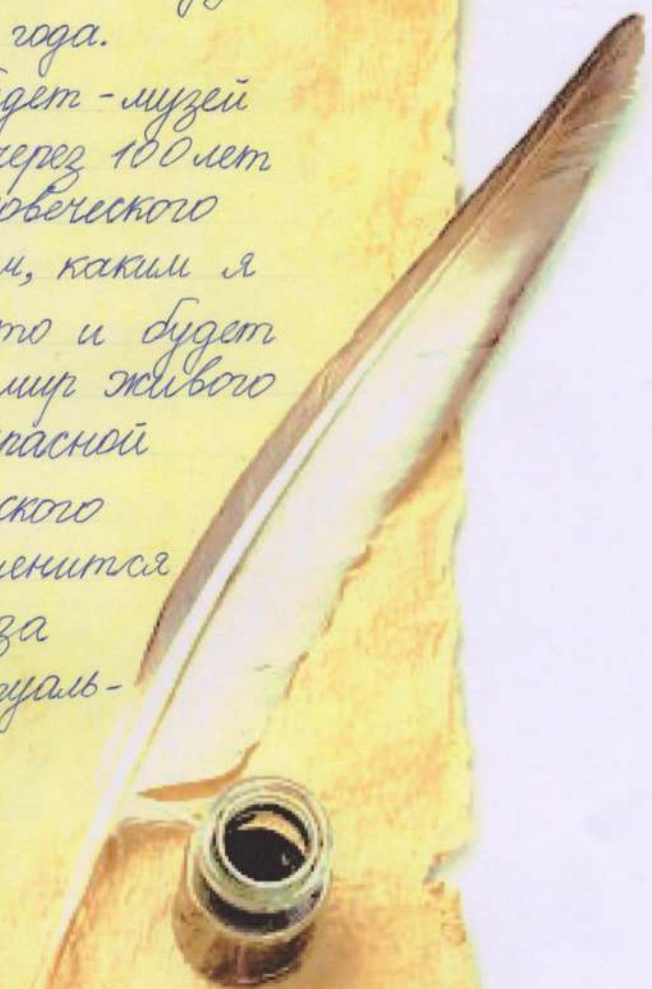 года.
дет - музей
через 100 лет
овеческого
м, каким я
то и будет
мир живого
пасной
ского
енится
за
туаль-